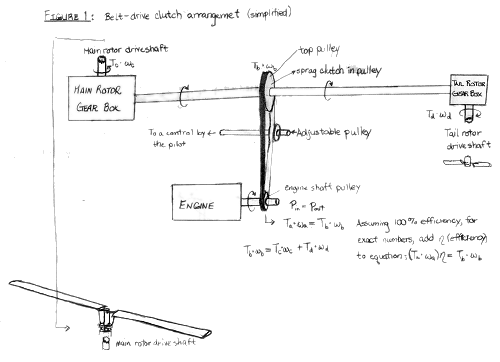 FIGURE 1: Belt-drive clutch arrangemet (simplified)
Main rotor driveshaft
Tc·ωc
MAIN ROTOR
GEAR BOX
Tb·ωb
top pulley
sprag clutch in pulley
TAIL ROTOR
GEAR BOX
Td·ωd
Tail rotor
driveshaft
To a control by
the pilot
Adjustable pulley
ENGINE
engine shaft pulley
Pin = Pout
Ta·ωa = Tb·ωb
Tb·ωb = Tc·ωc + Td·ωd
Assuming 100% efficiency, for
exact numbers, add η (efficiency)
to equation: (Ta·ωa)η = Tb·ωb
main rotor driveshaft